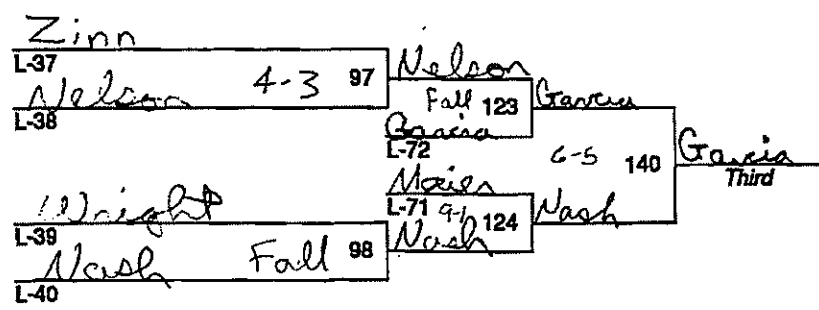 Zinn
L-37
Nelson 4-3 97 Nelson
L-38
Fall 123 Garcia
Garcia
L-72
6-5 140 Garcia
Third
Maier
L-71 9-1 124 Nash
Wright
L-39
Nash Fall 98 Nash
L-40